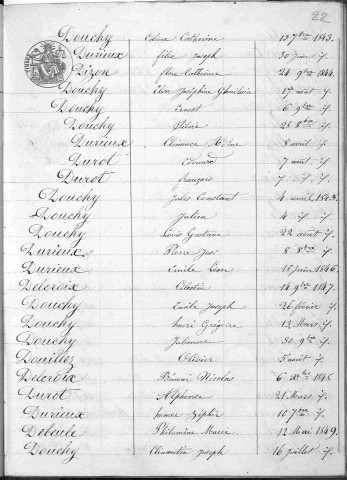 22
Douchy Céline Catherine 13 7bre 1843.
Durieux félix Joseph 30 juin if.
Dizon flore Catherine 24 9bre 1844.
Douchy Elisa Joséphine Ghuslain 1er août if.
Douchy Ernest 6 9bre if.
Douchy 28 8bre if.
Durieux Clémence 8 avril if.
Durot Edouard 7 août if.
Durot françois 7 if. if.
Douchy Jules Constant 4 avril 1845.
Douchy Julien 4 if. if.
Douchy Louis Gustave 22 août if.
Durieux Pierre José 8 8bre if.
Durieux Emile Léon 18 juin 1846.
Delcroix Célestin 14 9bre 1847.
Douchy Emile Joseph 26 février if.
Douchy henri Grégoire 13 Mars if.
Douchy Julienne 30 9bre if.
Douillez Olivier 5 août if.
Delcroix Nicolas 6 1848.
Durot Alphonse 21 Mars if.
Durieux homer Zéphir 10 7bre if.
Deboule Philomène Marie 12 Mai 1849.
Douchy Clémentin Joseph 16 juillet if.